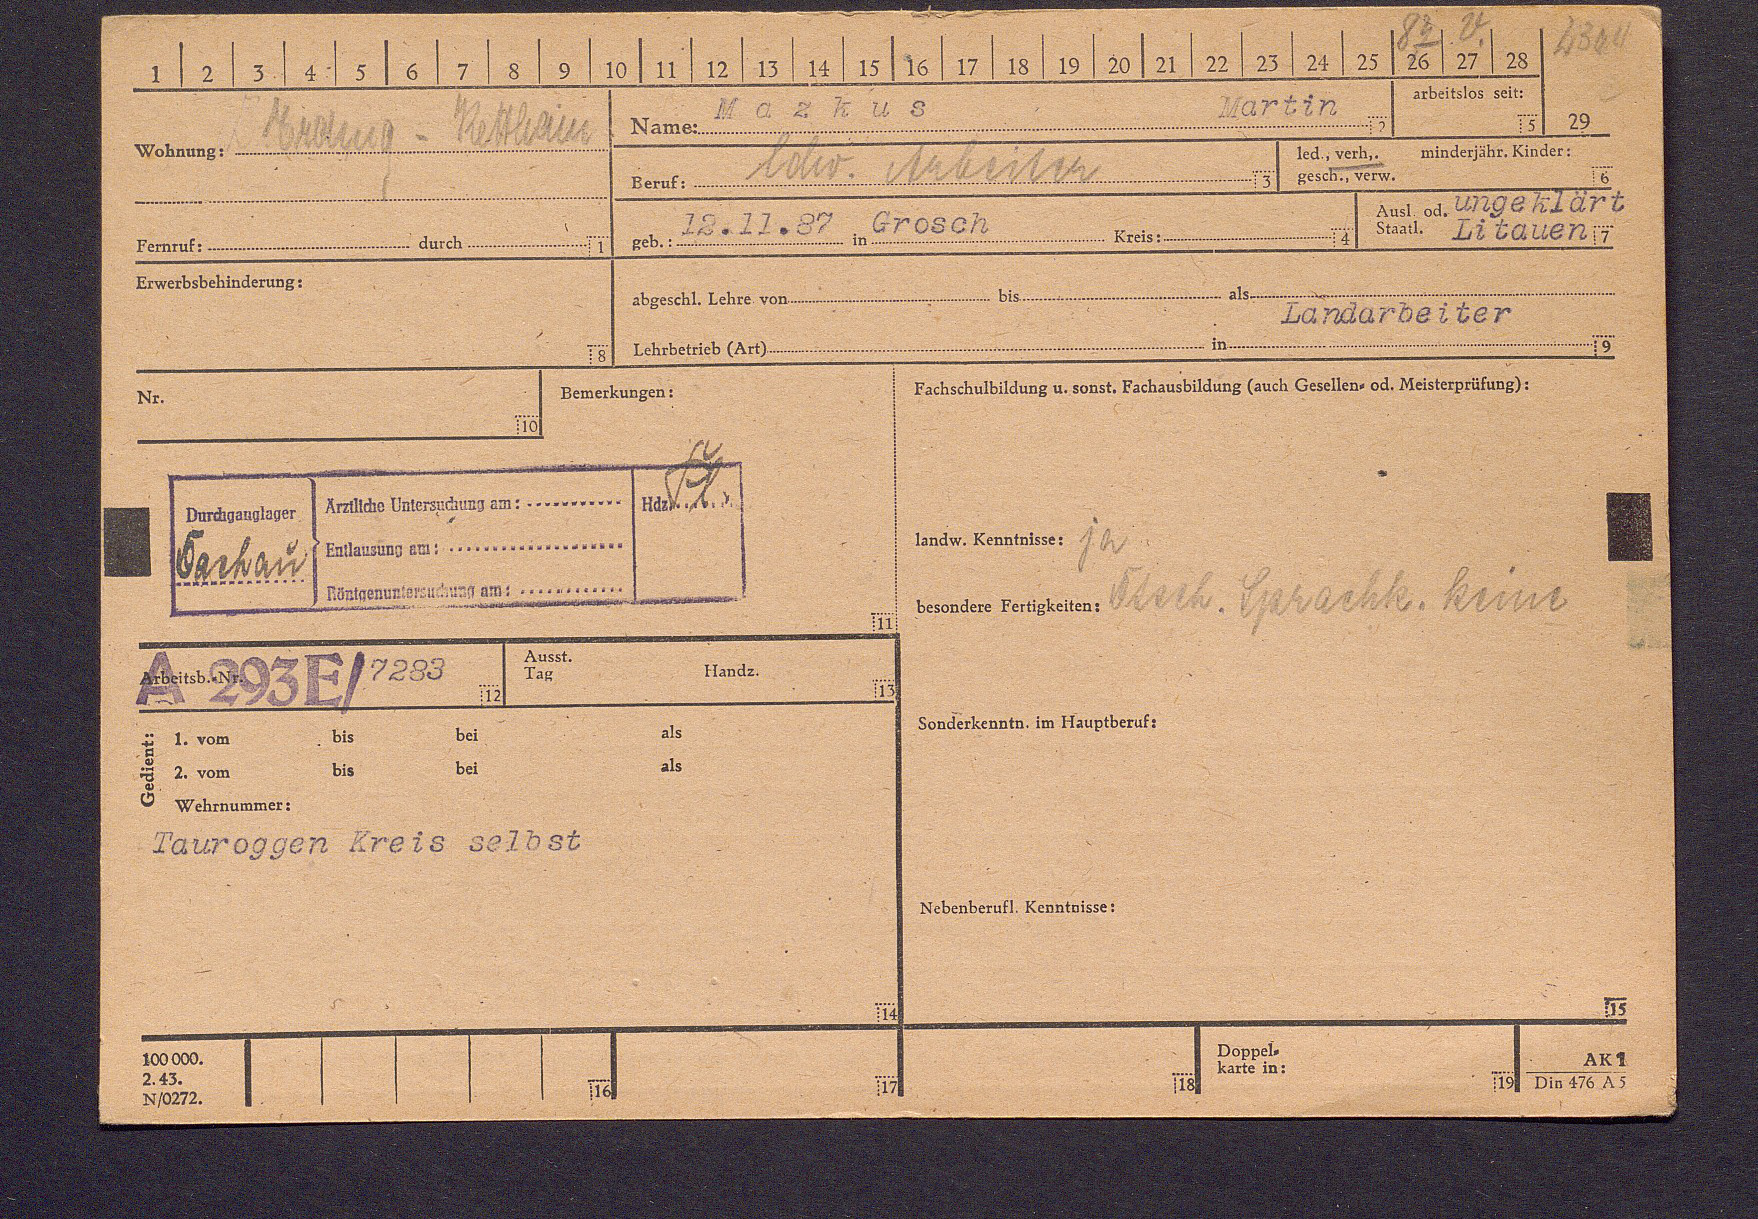 1 2 3 4 5 6 7 8 9 10 11 12 13 14 15 16 17 18 19 20 21 22 23 24 25 26 27 28
Wohnung:
Fernruf: durch 1
Name: Mazkus Martin 2
arbeitslos seit: 5
29
Beruf: ldw. Arbeiter 3
led., verh,. minderjähr. Kinder:
gesch., verw. 6
geb.: 12.11.87 in Grosch Kreis: 4
Ausl. od. ungeklärt
Staatl. Litauen 7
Erwerbsbehinderung:
8
abgeschl. Lehre von bis als
Landarbeiter
Lehrbetrieb (Art) in 9
Nr.
10
Bemerkungen:
Durchganglager
Tachau
Ärztliche Untersuchung am:
Entlausung am:
Röntgenuntersuchung am:
Hdz.
11
Arbeitsb.-Nr. A 293E/7283 12
Ausst.
Tag Handz. 13
Gedient:
1. vom bis bei als
2. vom bis bei als
Wehrnummer:
Tauroggen Kreis selbst
14
Fachschulbildung u. sonst. Fachausbildung (auch Gesellen- od. Meisterprüfung):
landw. Kenntnisse: ja
besondere Fertigkeiten: Dtsch. Sprachk. keine
Sonderkenntn. im Hauptberuf:
Nebenberufl. Kenntnisse:
15
100 000.
2. 43.
N/0272.
16
17
18
Doppel-
karte in: 19
AK 1
Din 476 A 5